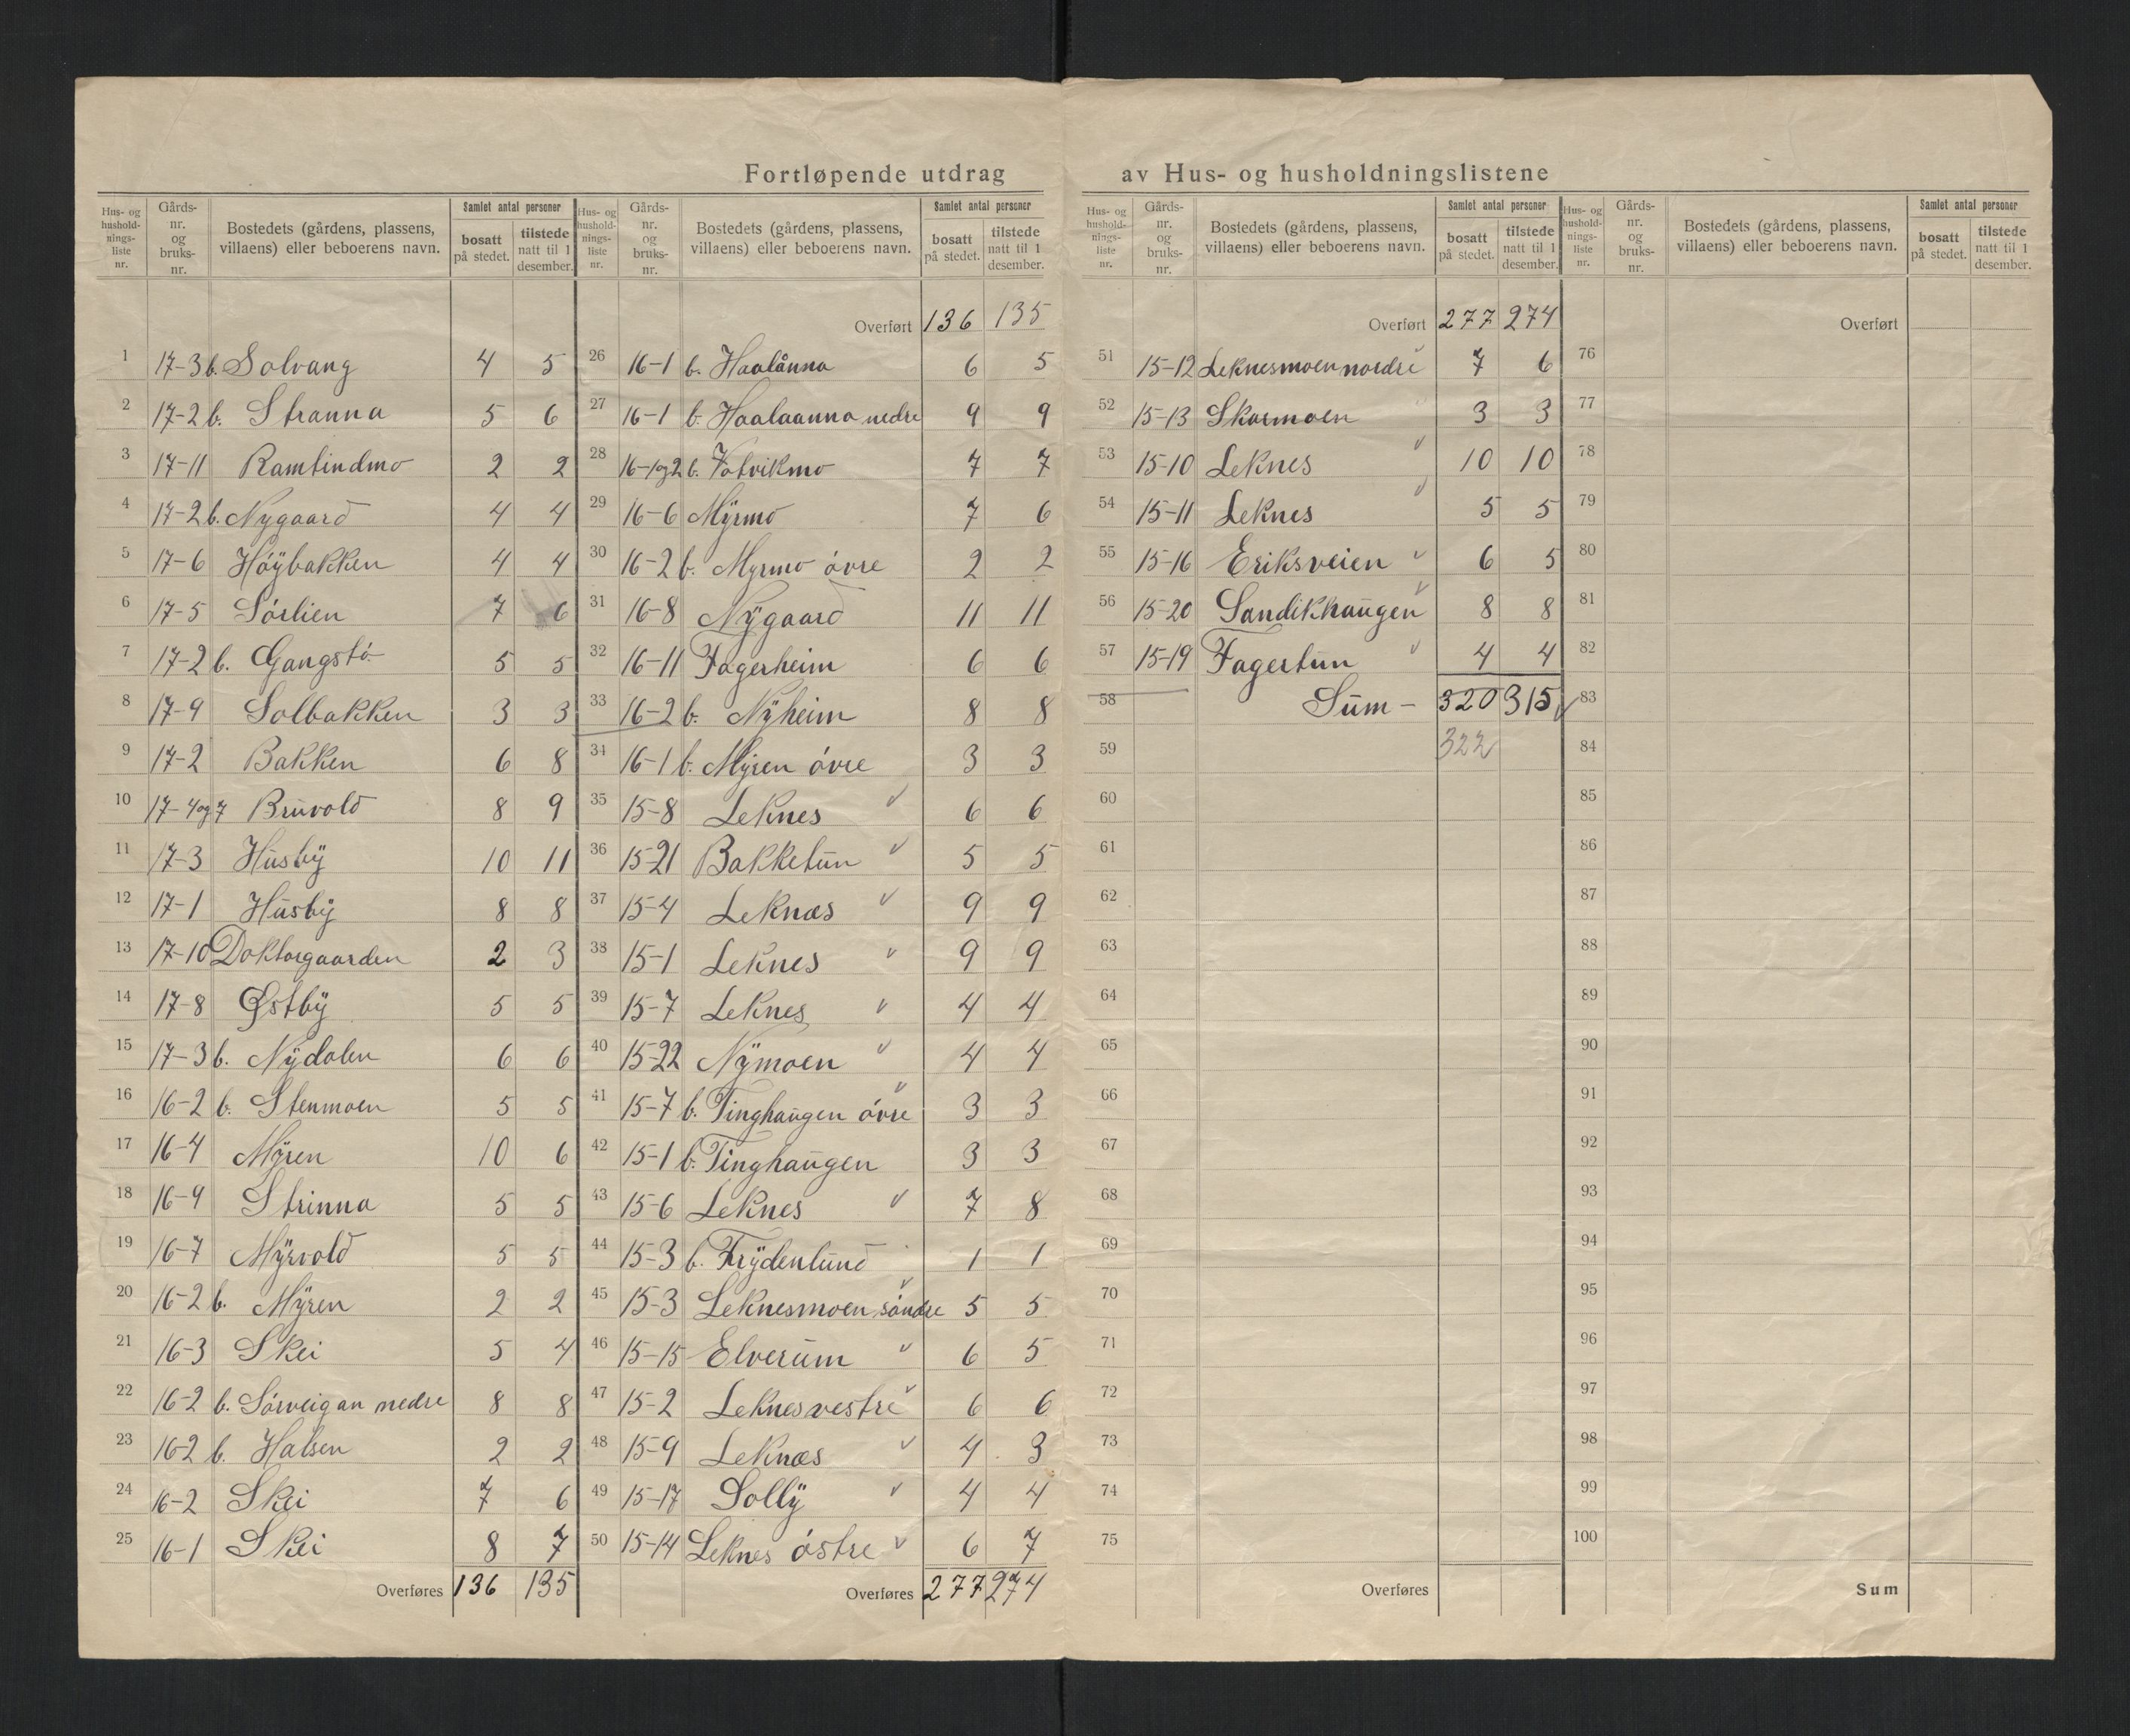 Fortløpende utdrag av Hus- og husholdningslistene
Hus- og hushold-nings-liste nr. | Gårds-nr. og bruks-nr. | Bostedets (gårdens, plassens, villaens) eller beboerens navn. | Samlet antal personer | bosatt på stedet. | tilstede natt til 1 desember.
1 17-3 b. Solvang 4 5
2 17-2 b. Stranna 5 6
3 17-11 Ramtindmo 2 2
4 17-2 b. Nygaard 4 4
5 17-6 Höybakken 4 4
6 17-5 Sörlien 7 6
7 17-2 b. Gangstö 5 5
8 17-9 Solbakken 3 3
9 17-2 Bakken 6 8
10 17-4 og 7 Bruvold 8 9
11 17-3 Husby 10 11
12 17-1 Husby 8 8
13 17-10 Doktorgaarden 2 3
14 17-8 Østby 5 5
15 17-3 b. Nydalen 6 6
16 16-2 b. Stenmoen 5 5
17 16-4 Myren 10 6
18 16-9 Strinna 5 5
19 16-7 Myrvold 5 5
20 16-2 b. Myren 2 2
21 16-3 Skei 5 4
22 16-2 b. Sörveigan nedre 8 8
23 16-2 b. Halsen 2 2
24 16-2 Skei 7 6
25 16-1 Skei 8 7
Overføres 136 135
Hus- og hushold-nings-liste nr. | Gårds-nr. og bruks-nr. | Bostedets (gårdens, plassens, villaens) eller beboerens navn. | Samlet antal personer | bosatt på stedet. | tilstede natt til 1 desember.
Overført 136 135
26 16-1 b. Haalånna 6 5
27 16-1 b. Haalaanna nedre 9 9
28 16-1 og 2 b. Votvikmo 7 7
29 16-6 Myrmo 7 6
30 16-2 b. Myrmo övre 2 2
31 16-8 Nygaard 11 11
32 16-11 Fagerheim 6 6
33 16-2 b. Nyheim 8 8
34 16-1 b. Myren övre 3 3
35 15-8 Leknes 6 6
36 15-21 Bakketun 5 5
37 15-4 Leknæs 9 9
38 15-1 Leknes 9 9
39 15-7 Leknes 4 4
40 15-22 Nymoen 4 4
41 15-7 b. Tinghaugen övre 3 3
42 15-1 b. Tinghaugen 3 3
43 15-6 Leknes 7 8
44 15-3 b. Frydenlund 1 1
45 15-3 Leknesmoen söndre 5 5
46 15-15 Elverum 6 5
47 15-2 Leknes vestre 6 6
48 15-9 Leknæs 4 3
49 15-17 Solly 4 4
50 15-14 Leknes östre 6 7
Overføres 277 274
Hus- og hushold-nings-liste nr. | Gårds-nr. og bruks-nr. | Bostedets (gårdens, plassens, villaens) eller beboerens navn. | Samlet antal personer | bosatt på stedet. | tilstede natt til 1 desember.
Overført 277 274
51 15-12 Leknesmoen nordre 7 6
52 15-13 Skarmoen 3 3
53 15-10 Leknes 10 10
54 15-11 Leknes 5 5
55 15-16 Eriksveien 6 5
56 15-20 Sandikhaugen 8 8
57 15-19 Fagertun 4 4
58 Sum - 320 315
59 322
60
61
62
63
64
65
66
67
68
69
70
71
72
73
74
75
Overføres
Hus- og hushold-nings-liste nr. | Gårds-nr. og bruks-nr. | Bostedets (gårdens, plassens, villaens) eller beboerens navn. | Samlet antal personer | bosatt på stedet. | tilstede natt til 1 desember.
Overført
76
77
78
79
80
81
82
83
84
85
86
87
88
89
90
91
92
93
94
95
96
97
98
99
100
Sum